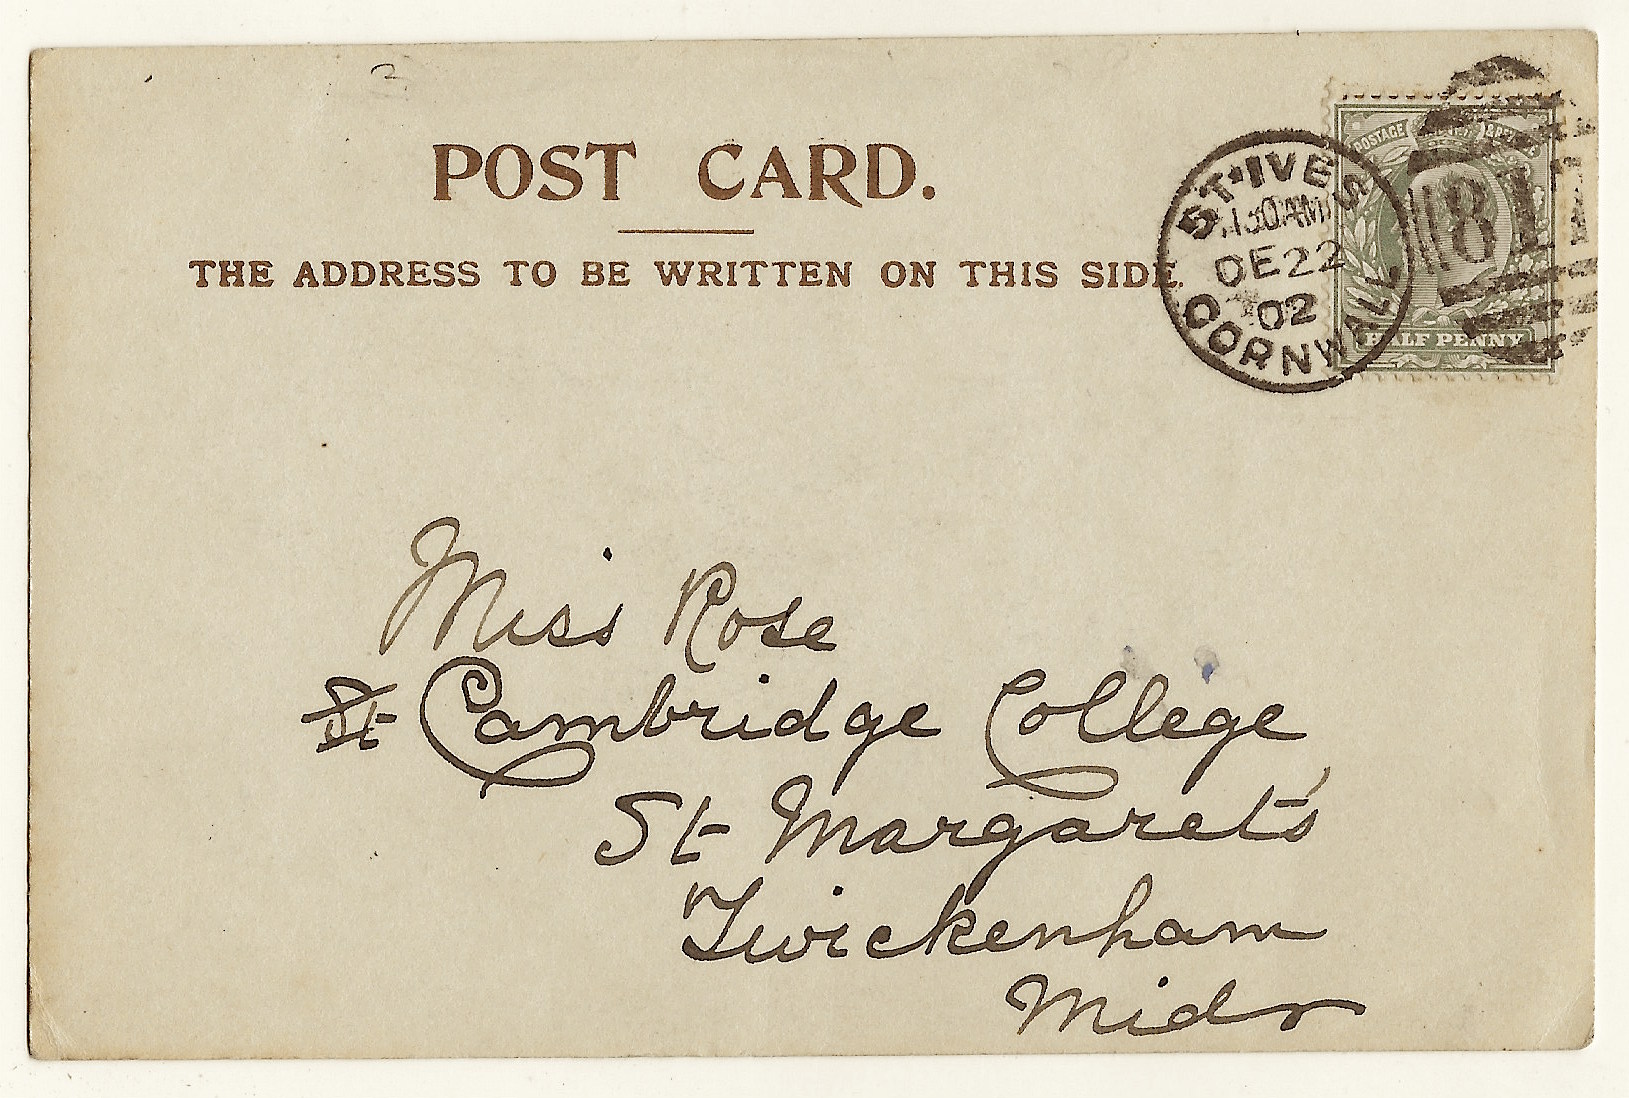 POST CARD.
THE ADDRESS TO BE WRITTEN ON THIS SIDE.
ST. IVES
DE 22
02
CORNWALL
POSTAGE
HALF PENNY
Miss Rose
Cambridge College
St Margaret's
Twickenham
Midx